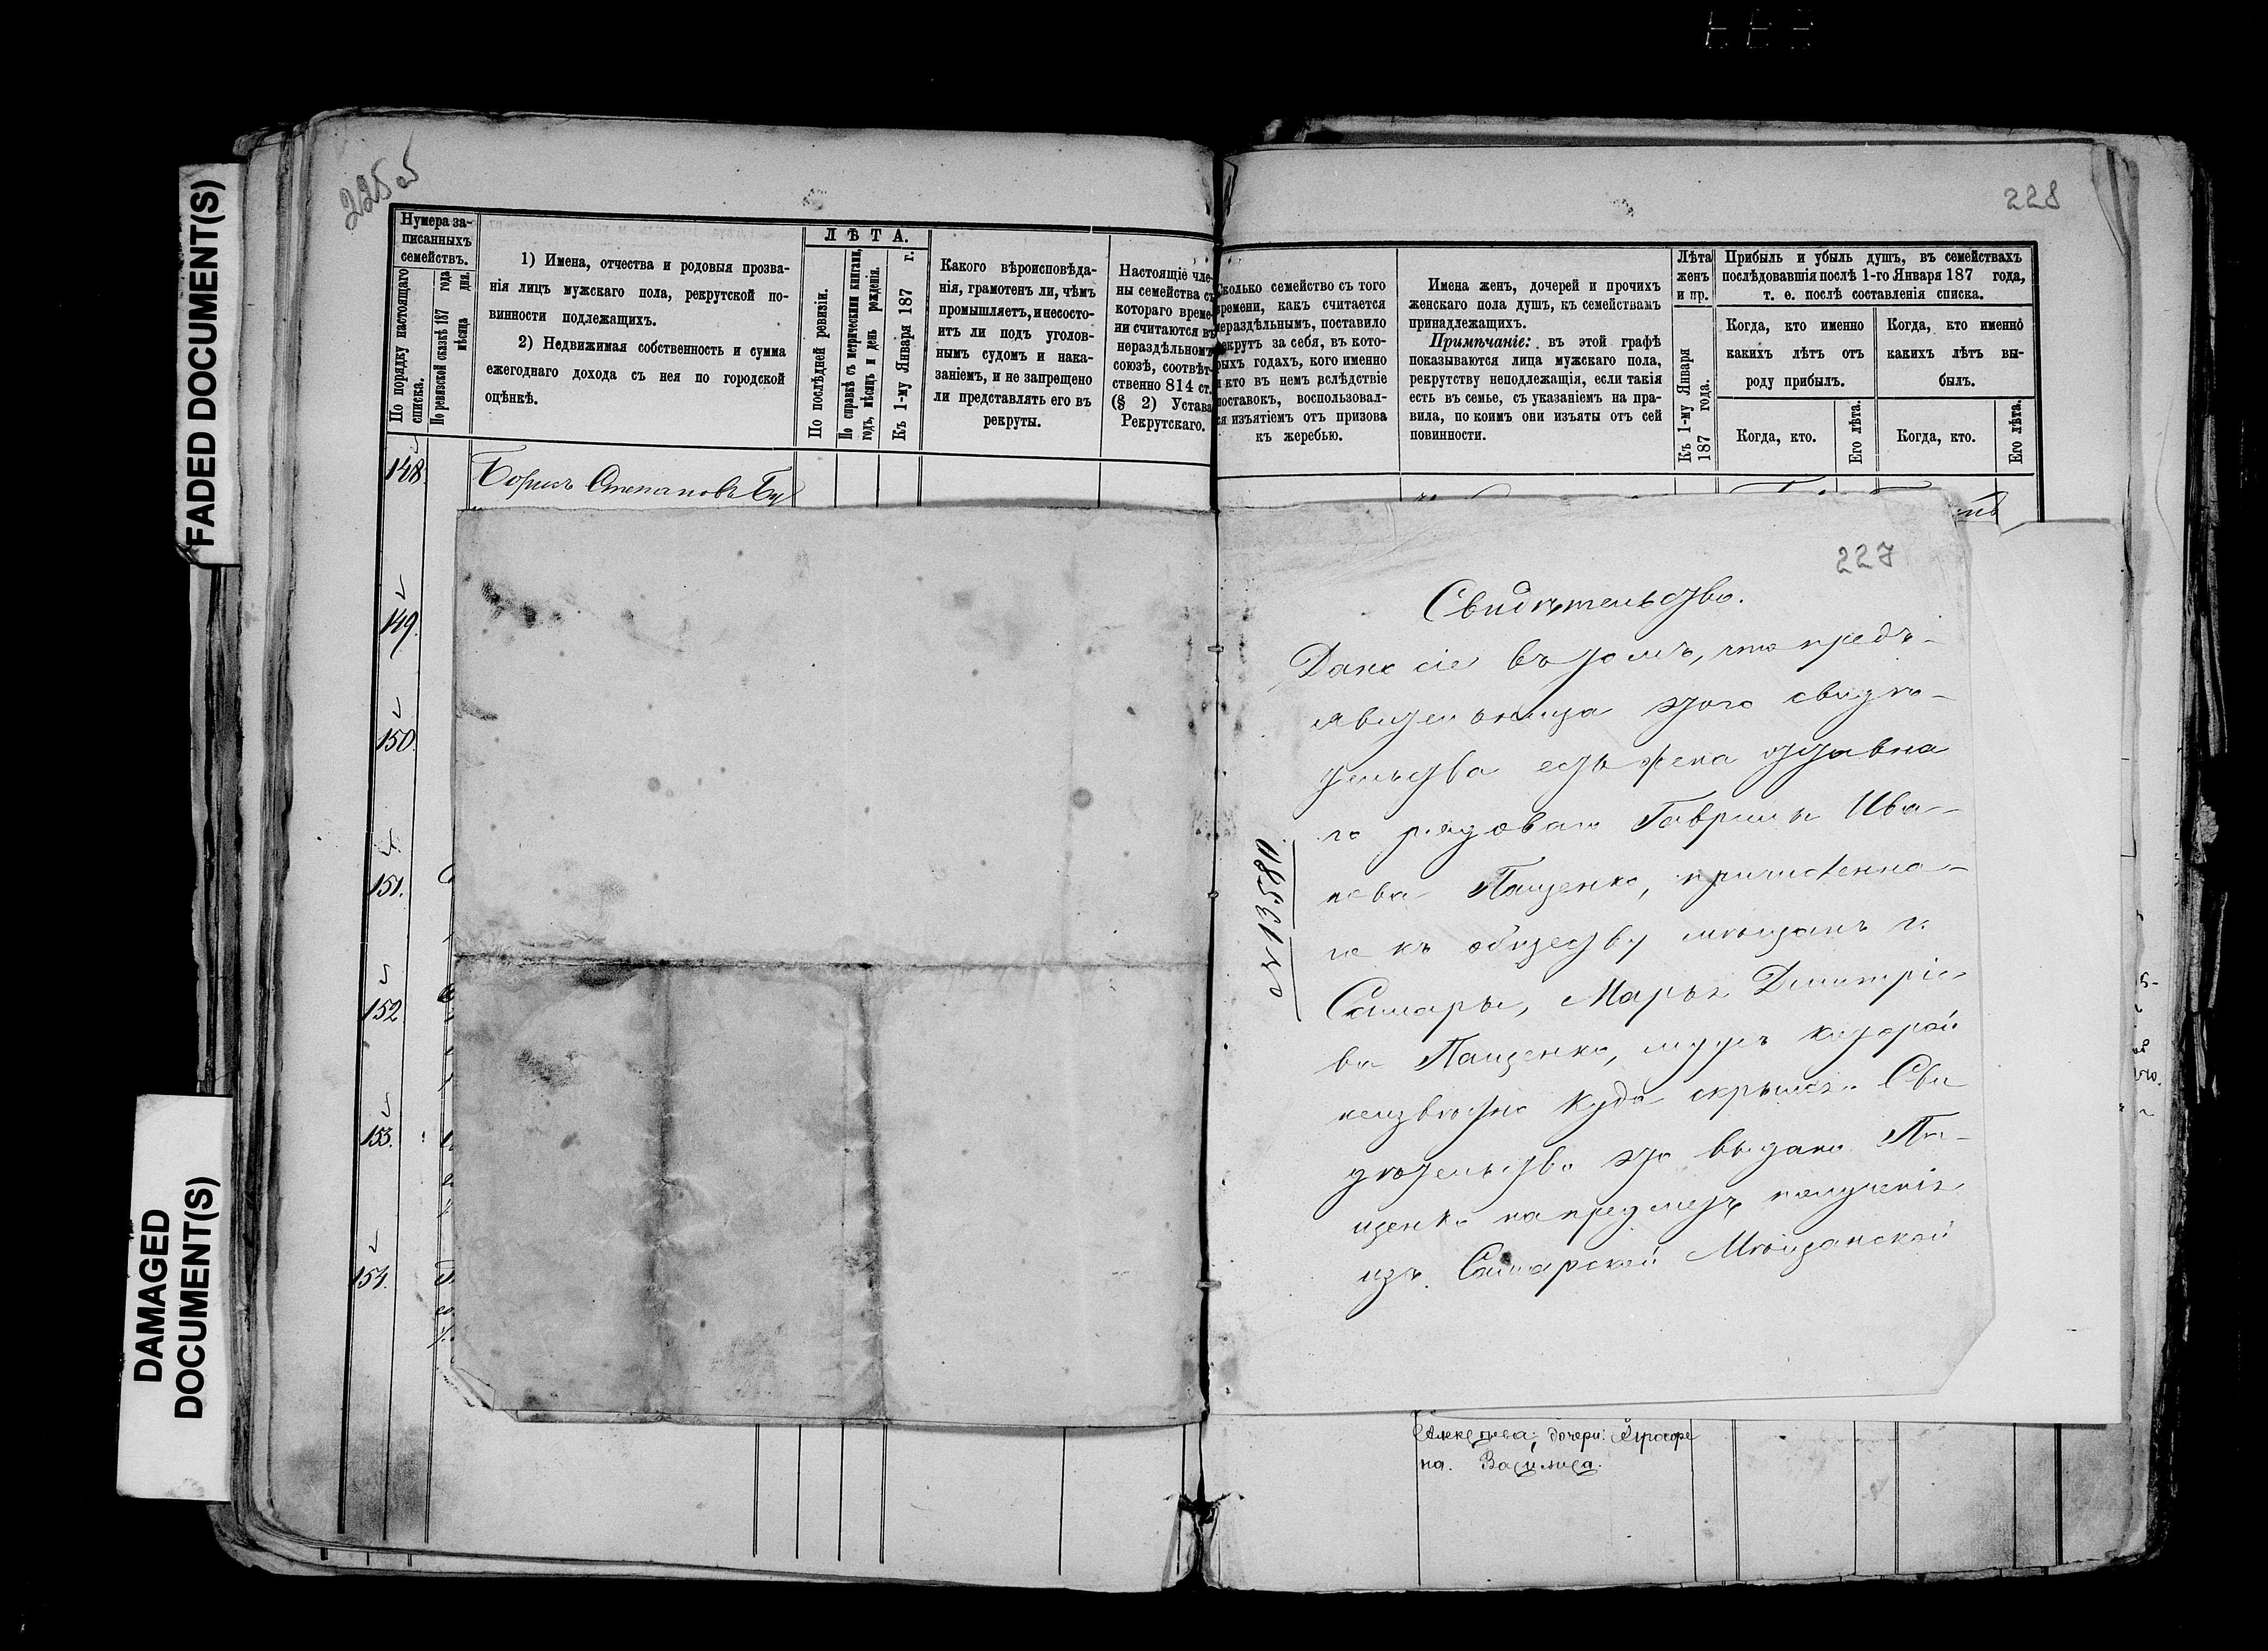 FADED DOCUMENT(S)
DAMAGED
DOCUMENT(S)
225 об
Нумера за-
писанныхъ
семействъ.
По порядку настоящаго
списка.
По ревизской сказкѣ 187 года
мѣсяца дня.
1) Имена, отчества и родовыя прозва-
нія лицъ мужскаго пола, рекрутской по-
винности подлежащихъ.
2) Недвижимая собственность и сумма
ежегоднаго дохода съ нея по городской
оцѣнкѣ.
ЛѢТА.
По послѣдней ревизіи.
По справкѣ съ метрическими книгами,
годъ, мѣсяцъ и день рожденія.
Къ 1-му Января 187 г.
Какого вѣроисповѣда-
нія, грамотенъ ли, чѣмъ
промышляетъ, и несосто-
итъ ли подъ уголов-
нымъ судомъ и нака-
заніемъ, и не запрещено
ли представлять его въ
рекруты.
Настоящіе чле-
ны семейства съ
котораго време-
ни считаются въ
нераздѣльномъ
союзѣ, соотвѣт-
ственно 814 ст.
(§ 2) Устава
Рекрутскаго.
148. Борисъ Степановъ
149.
150.
151.
152.
153.
154.
228
Сколько семейство съ того
времени, какъ считается
нераздѣльнымъ, поставило
рекрутъ за себя, въ кото-
рыхъ годахъ, кого именно
и кто въ немъ вслѣдствіе
поставокъ, воспользовал-
ся изъятіемъ отъ призова
къ жеребью.
Имена женъ, дочерей и прочихъ
женскаго пола душъ, къ семействамъ
принадлежащихъ.
Примѣчаніе: въ этой графѣ
показываются лица мужскаго пола,
рекрутству неподлежащія, если такія
есть въ семьѣ, съ указаніемъ на пра-
вила, по коимъ они изъяты отъ сей
повинности.
Лѣта
женъ
и пр.
Къ 1-му Января
187 года.
Прибыль и убыль душъ, въ семействахъ
послѣдовавшія послѣ 1-го Января 187 года,
т. е. послѣ составленія списка.
Когда, кто именно
какихъ лѣтъ отъ
роду прибылъ.
Когда, кто именно
какихъ лѣтъ вы-
былъ.
Когда, кто.
Его лѣта.
Когда, кто.
Его лѣта.
227
№ 13580
Свидѣтельство.
Дано сіе въ томъ, что предъ-
явительница этого свидѣ-
тельства есть жена отставна
го рядоваго Гаврилы Ива-
нова Пащенко, причисленна-
го къ обществу мѣщанъ г.
Самары, Марья Димитріе
ва Пащенко, мужъ которой
неизвѣстно куда скрылся. Сви
дѣтельство это выдано Па-
щенко на предметъ полученія
изъ Самарской Мѣщанской
дочери: Аграфе
на. Василиса.